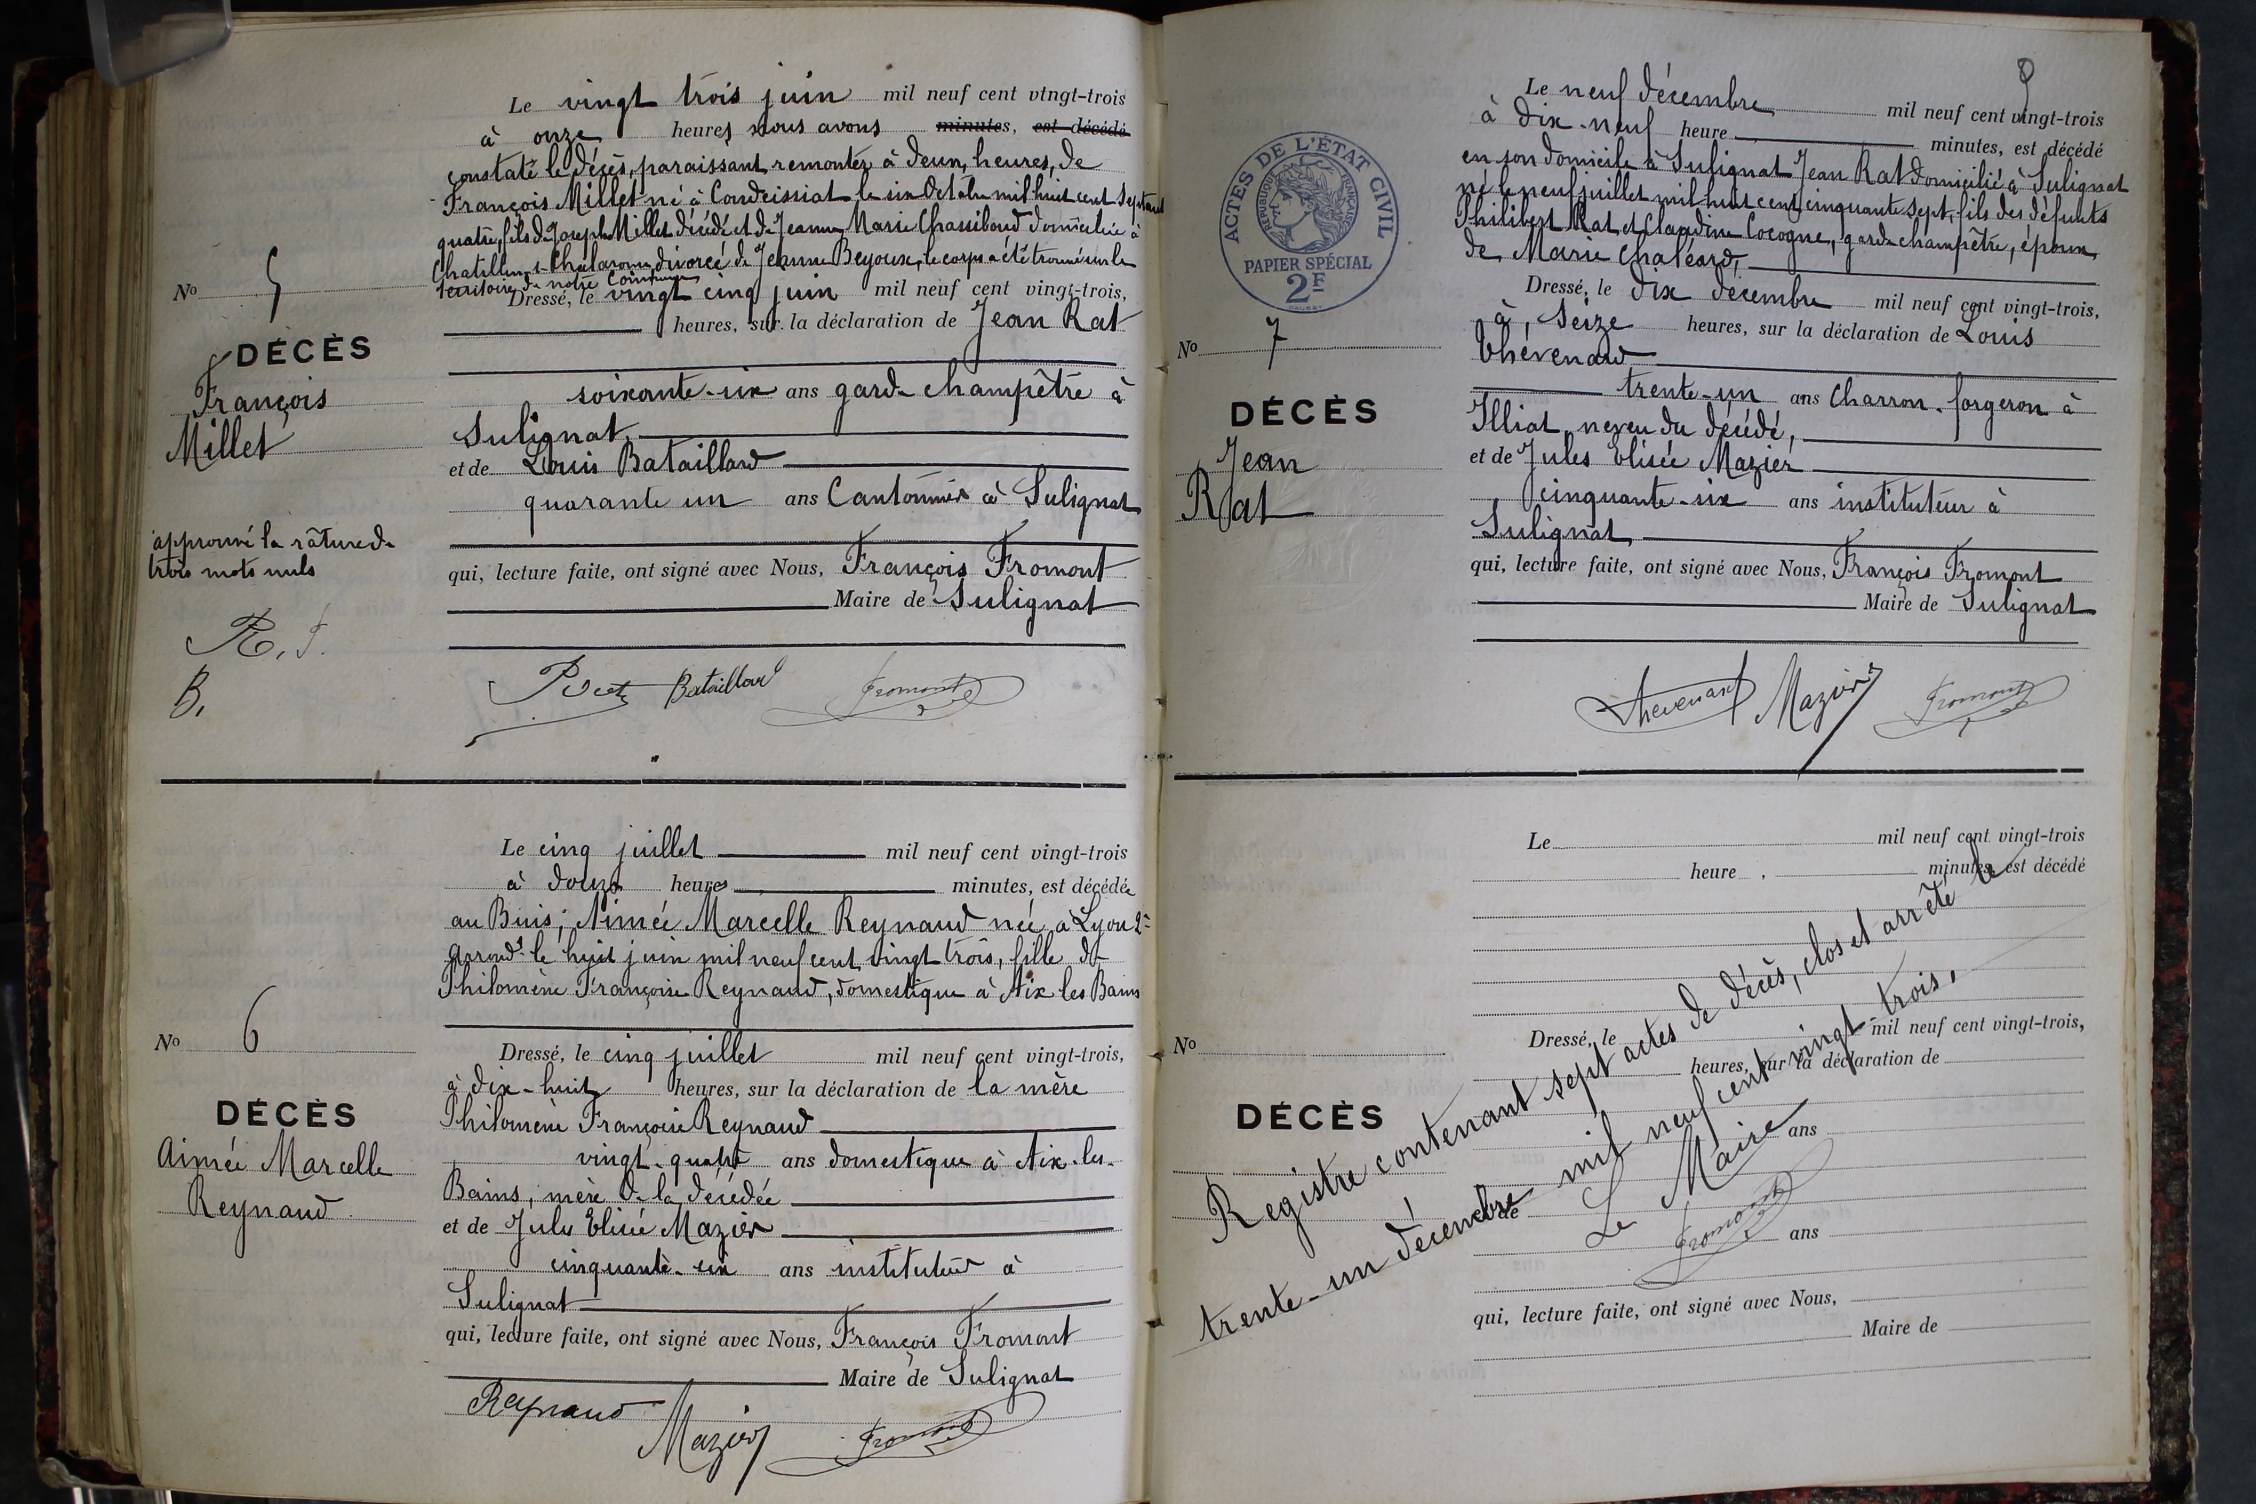 Le vingt trois juin mil neuf cent vingt-trois
à onze heures nous avons minutes, est décédé
constaté le décès, paraissant remonter à deux heures, de
François Millet né à Condeissiat le six Octobre mil huit cent septante
quatre, fils de Joseph Millet décédé et de Jeanne Marie Chassiboud domiciliée à
Chatillon s Chalaronne divorcé de Jeanne Beyoux, le corps a été trouvé sur le
territoire de notre Commune
No 5
Dressé, le vingt cinq juin mil neuf cent vingt-trois,
heures, sur la déclaration de Jean Rat
DÉCÈS
François
Millet
soixante-six ans garde champêtre à
Sulignat
et de Louis Bataillard
quarante un ans Cantonnier à Sulignat
approuvé la râture de
trois mots nuls
qui, lecture faite, ont signé avec Nous, François Fromont
Maire de Sulignat
R. F.
B.
Rat Bataillard Fromont
Le cinq juillet mil neuf cent vingt-trois
à douze heures minutes, est décédée
au Buis; Aimée Marcelle Reynaud née à Lyon 2e
arrondt le huit juin mil neuf cent vingt trois, fille de
Philomène Françoise Reynaud, domestique à Aix les Bains
No 6
Dressé, le cinq juillet mil neuf cent vingt-trois,
à dix-huit heures, sur la déclaration de la mère
DÉCÈS
Aimée Marcelle
Reynaud
Philomène Françoise Reynaud
vingt-quatre ans domestique à Aix-les-
Bains, mère de la décédée
et de Jules Elisée Mazier
cinquante-six ans instituteur à
Sulignat
qui, lecture faite, ont signé avec Nous, François Fromont
Maire de Sulignat
Reynaud Mazier Fromont
8
Le neuf décembre mil neuf cent vingt-trois
à dix-neuf heure minutes, est décédé
en son domicile à Sulignat Jean Rat domicilié à Sulignat
né le neuf juillet mil huit cent cinquante sept, fils des défunts
Philibert Rat et Claudine Cocogne, garde champêtre, époux
de Marie Chaléard,
ACTES DE L'ÉTAT CIVIL
RÉPUBLIQUE FRANÇAISE
PAPIER SPÉCIAL
2F
No 7
Dressé, le dix décembre mil neuf cent vingt-trois,
à, seize heures, sur la déclaration de Louis
Thévenard
DÉCÈS
Jean
Rat
trente-un ans Charron-forgeron à
Illiat neveu du décédé,
et de Jules Elisée Mazier
cinquante-six ans instituteur à
Sulignat,
qui, lecture faite, ont signé avec Nous, François Fromont
Maire de Sulignat
Thevenard Mazier Fromont
Le mil neuf cent vingt-trois
heure, minutes, est décédé
No
Dressé, le mil neuf cent vingt-trois,
heures, sur la déclaration de
DÉCÈS
ans
et de
ans
qui, lecture faite, ont signé avec Nous,
Maire de
Registre contenant sept actes de décès, clos et arrêté le
trente-un décembre mil neuf cent vingt-trois,
Le Maire
Fromont